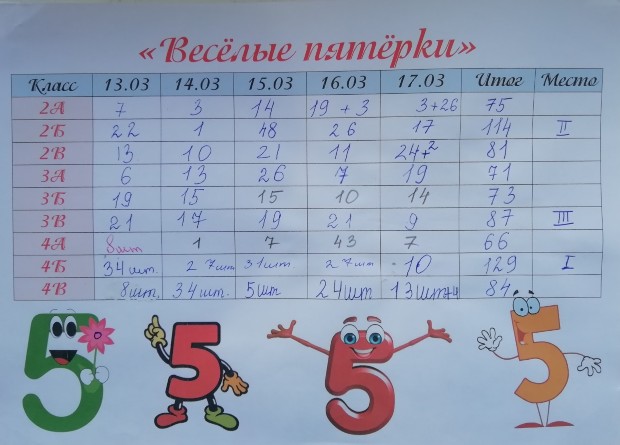 «Весёлые пятёрки»
Класс 13.03 14.03 15.03 16.03 17.03 Итог Место
2А 7 3 14 19 + 3 3+26 75
2Б 22 1 48 26 17 114 II
2В 13 10 21 11 24+2 81
3А 6 13 26 7 19 71
3Б 19 15 15 10 14 73
3В 21 17 19 21 9 87 III
4А 8шт 1 7 43 7 66
4Б 34шт. 27шт 31шт 27шт 10 129 I
4В 8шт. 34шт. 5шт 24шт 13шт+4 84
5
5
5
5